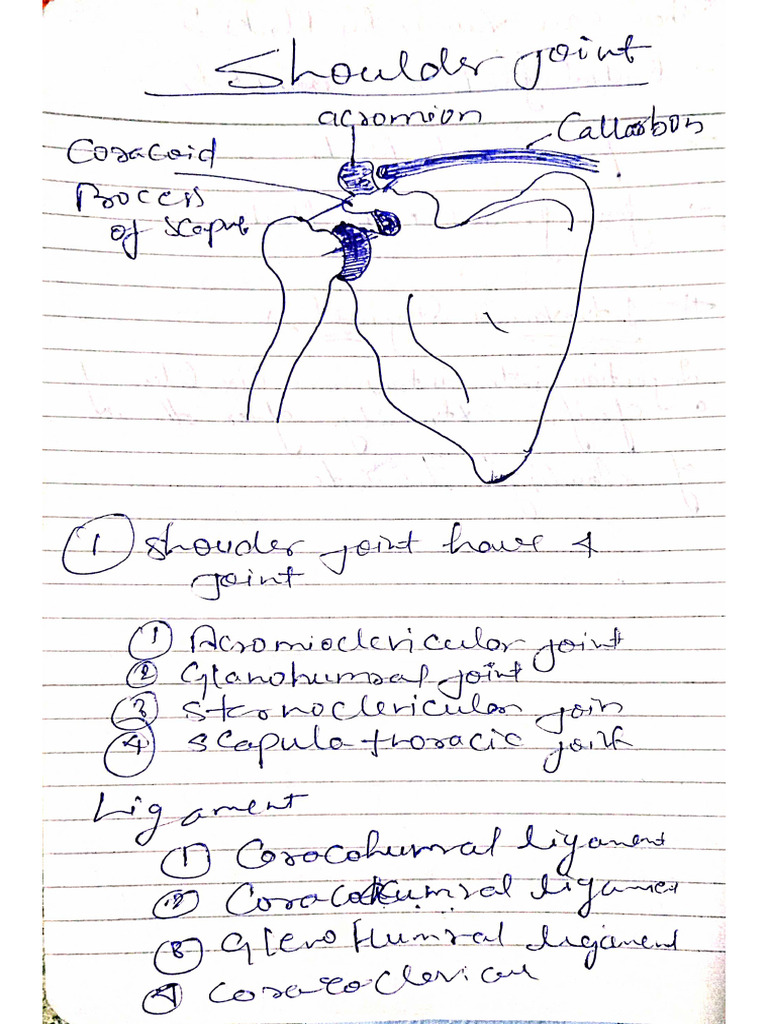 Shoulder joint
acromion
Callarbon
Coracoid
Process
of scapule
① Shouder joint have 4
joint
① Acromioclericular joint
② Glanohumral joint
③ Sternoclericular join
④ scapula thoracic joint
Ligament
① Corocohumral ligament
② Coracohumral ligament
③ Gleno Humral ligament
④ Coracoclerical